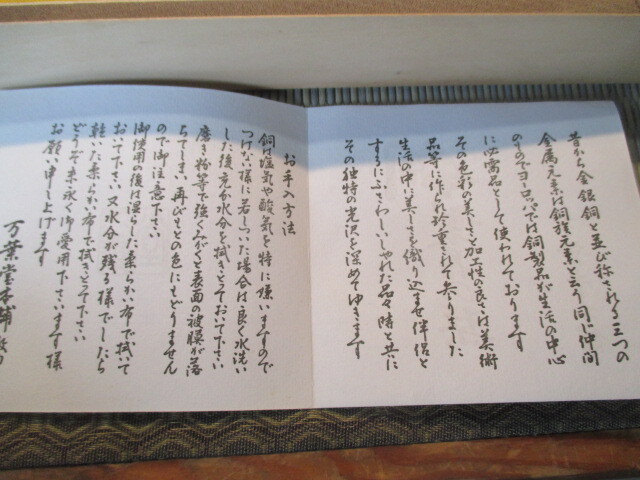 昔から金銀銅と並び称される三つの
金属元素は銅族元素と云う同じ仲間
のものでヨーロッパでは銅製品が生活の中心
に必需品として使われております
その色彩の美しさと加工性の良さは美術
品等に作られ珍重されて参りました
生活の中に美しさを織り込ませ伴侶と
するにふさわしいしゃれた品々時と共に
その独特の光沢を深めてゆきます
お手入方法
銅は塩気や酸気を特に嫌いますので
つけない様に若しついた場合は良く水洗い
した後充分水分を拭きとっておいて下さい
磨き粉等で強くみがくと表面の被膜が落
ちてしまい再びもとの色にもどりません
ので御注意下さい
御使用の後は湿らした柔らかい布で拭いて
おいて下さい又水分が残る様でしたら
乾いた柔らか布で拭きとって下さい
どうぞ末永く御愛用下さいます様
お願い申し上げます
万葉堂本舗